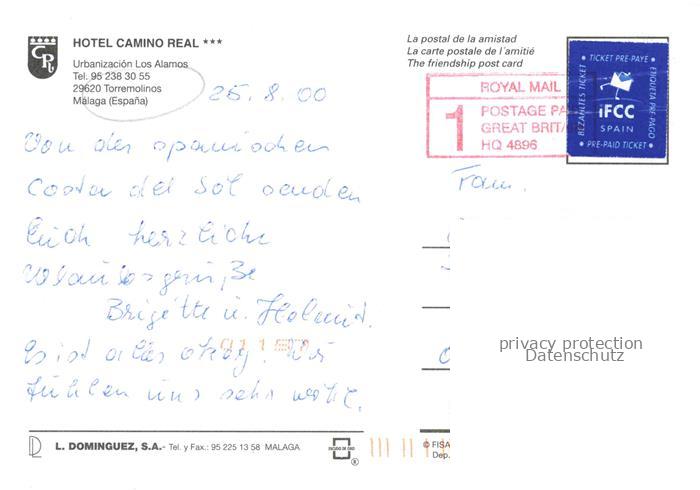 HOTEL CAMINO REAL ***
Urbanización Los Alamos
Tel. 95 238 30 55
29620 Torremolinos
Málaga (España)
CR
25.8.00
La postal de la amistad
La carte postale de l'amitié
The friendship post card
ROYAL MAIL
1
POSTAGE PA
GREAT BRITA
HQ 4896
TICKET PRE-PAYE
BEZAHLTES TICKET
ETIQUETA PRE-PAGO
iFCC
SPAIN
PRE-PAID TICKET
Von der spanischen
Costa del Sol senden
Euch herzliche
Urlaubsgrüße
Brigitte u. Helmut.
Es ist alles okay! Wir
fühlen uns sehr wohl.
Fam.
privacy protection
Datenschutz
L. DOMINGUEZ, S.A.- Tel. y Fax.: 95 225 13 58 MALAGA
ESCUDO DE ORO
®
© FISA
Dep.